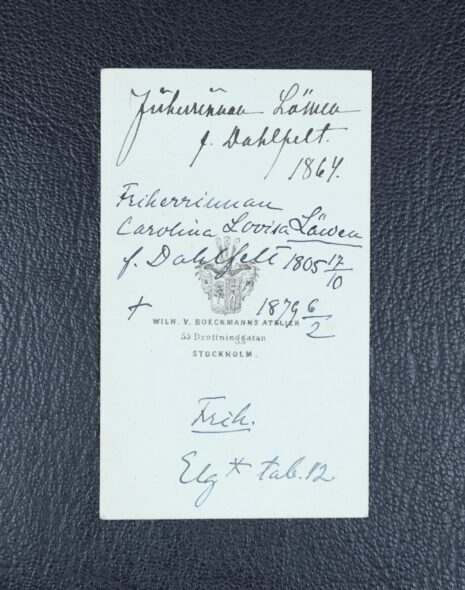 Friherrinnan Löwen
f. Dahlfelt.
1864.
Friherrinnan
Carolina Lovisa Löwen
f. Dahlfelt 1805 17/10
† 1879 6/2
WILH. V. BOECKMANNS ATELIER
55 Drottninggatan
STOCKHOLM.
Frih.
Elg* tab. 12